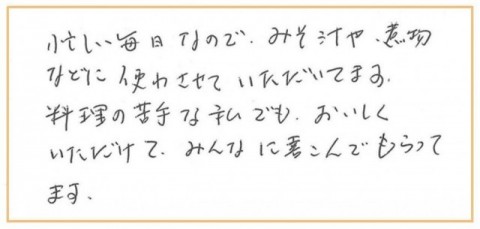 忙しい毎日なので、みそ汁や、煮物
などに使わさせていただいてます。
料理の苦手な私でも、おいしく
いただけて、みんなに喜こんでもらって
ます。